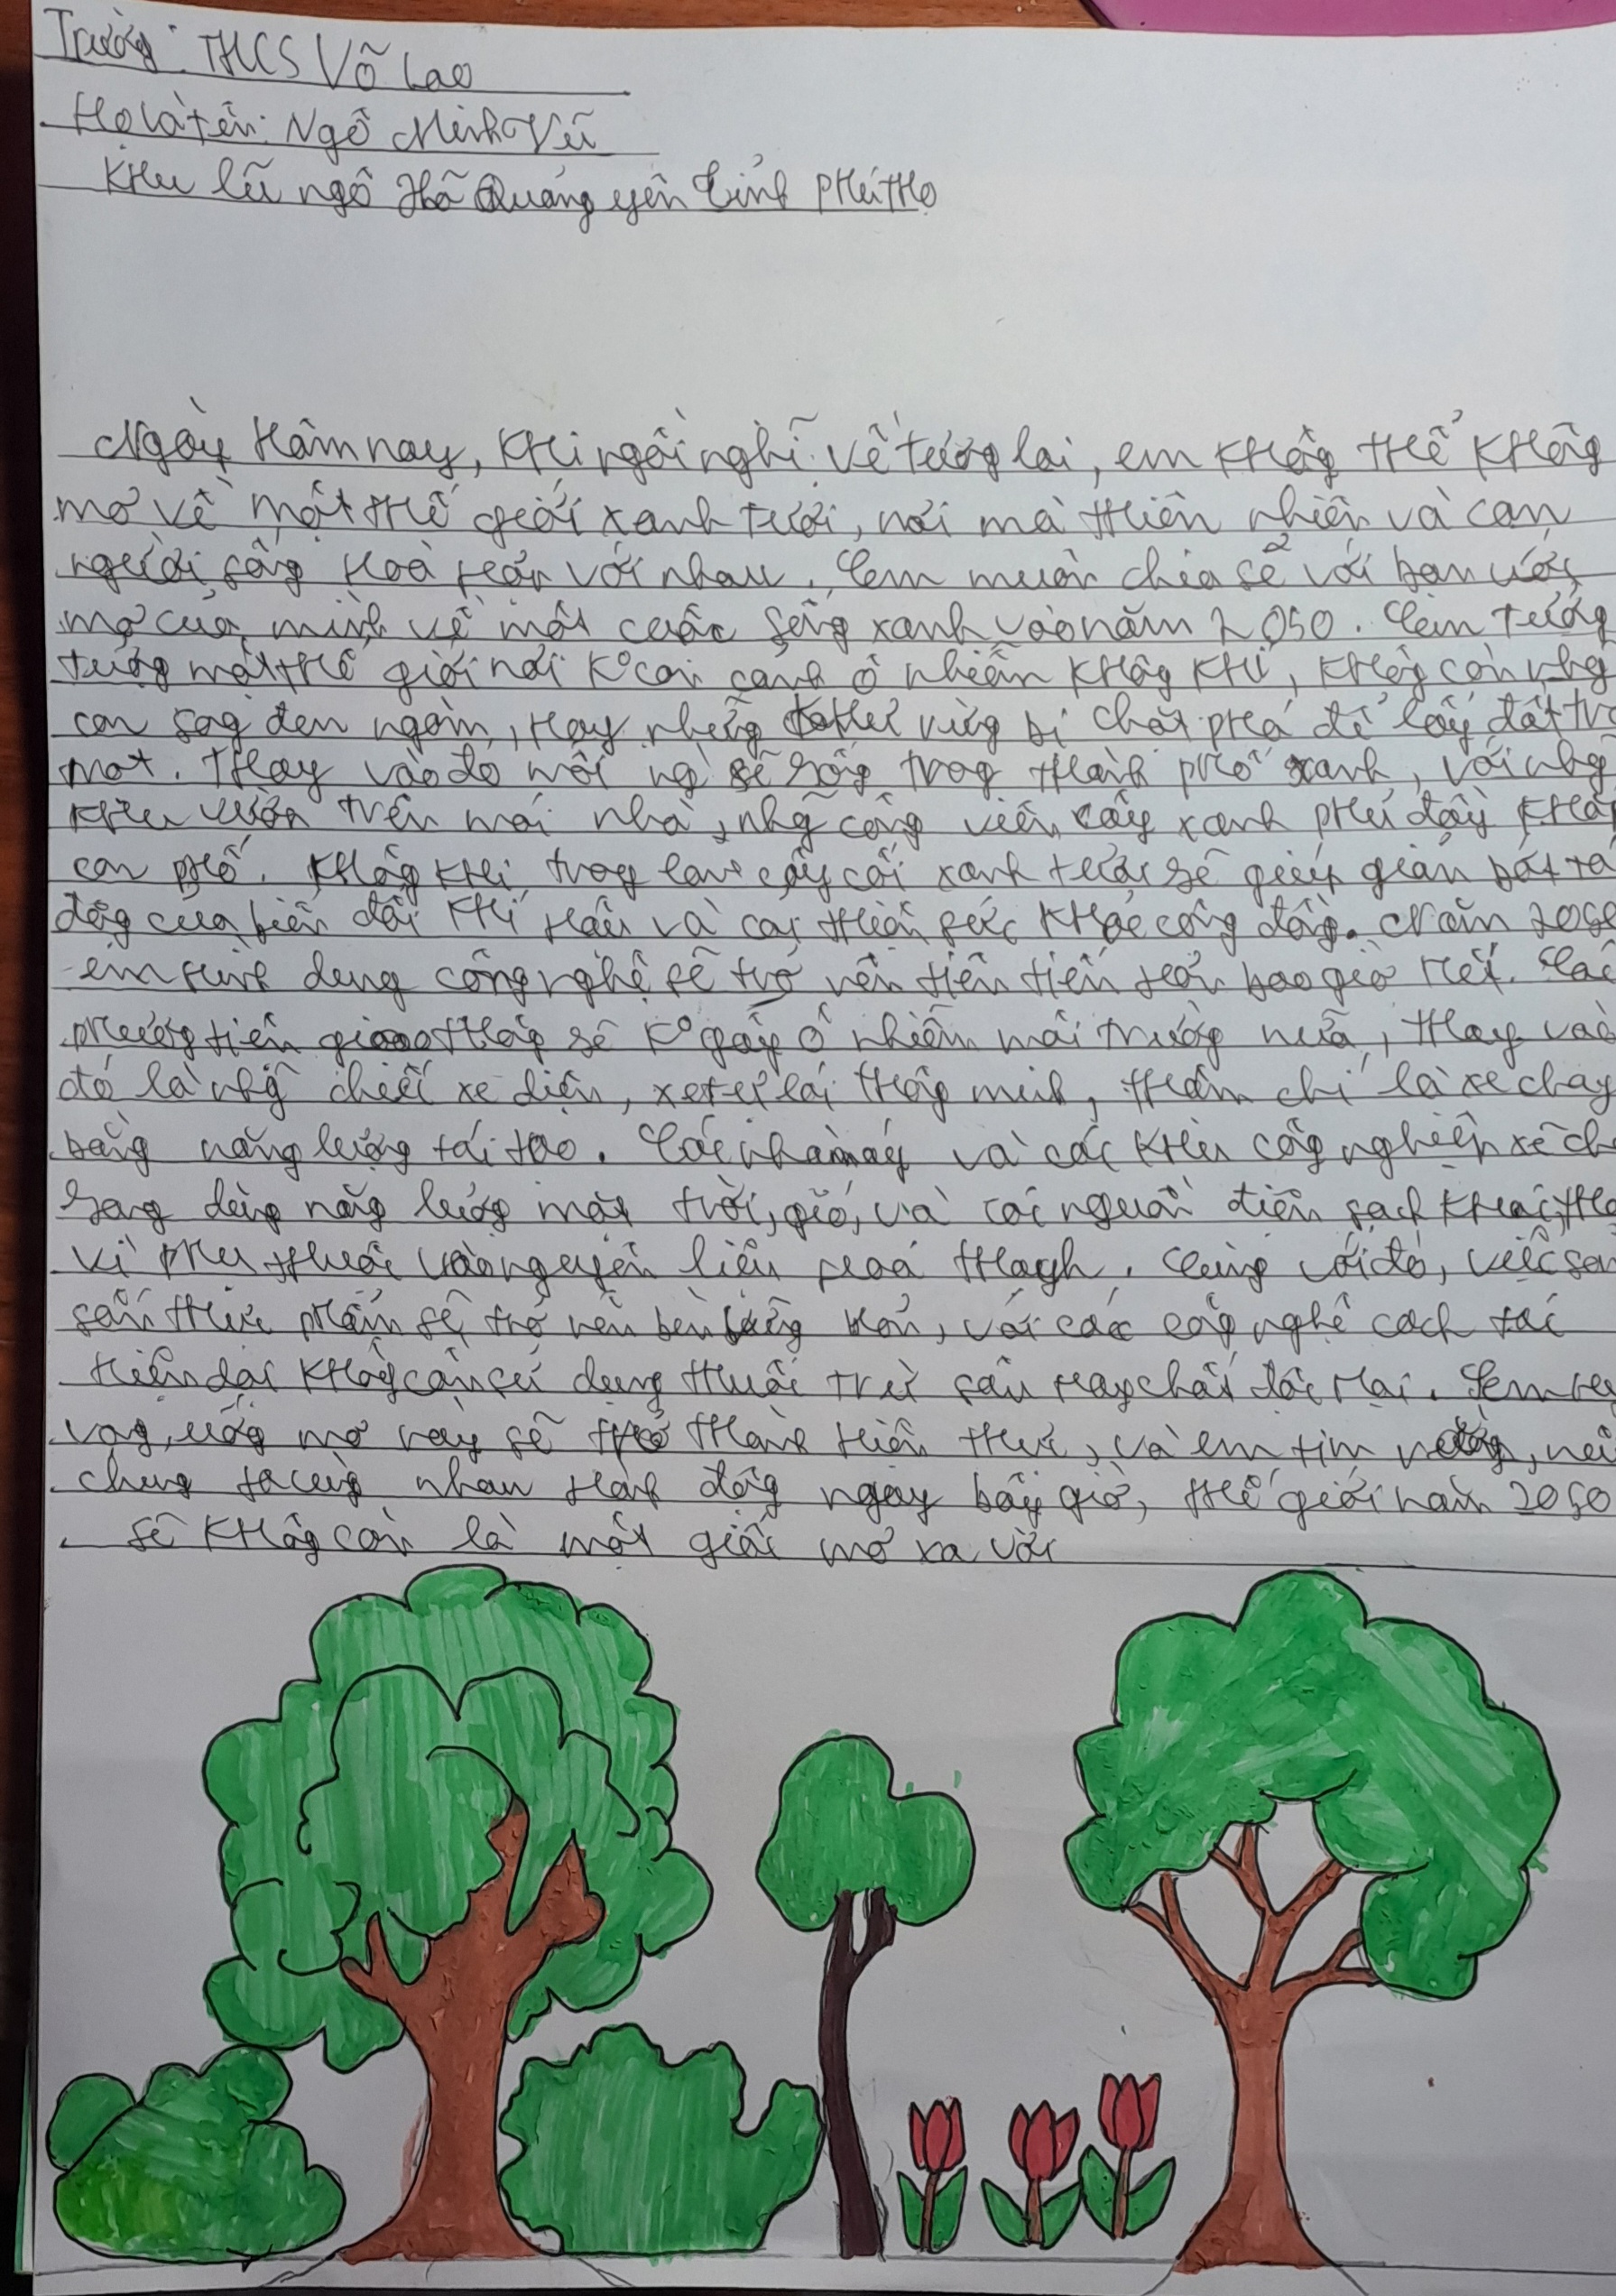 Trường: THCS Võ Lao
Họ và tên: Ngô Minh Vũ
Khu lũ ngô Xã Quảng yên tỉnh Phú Thọ
Ngày hôm nay, khi ngồi nghĩ về tương lai, em không thể không
mơ về một thế giới xanh tươi, nơi mà thiên nhiên và con
người sống hoà hợp với nhau. Em muốn chia sẻ với bạn ước
mơ của mình về một cuộc sống xanh vào năm 2050. Em tưởng
tượng một thế giới nơi k° còn cảnh ô nhiễm không khí, không còn nhg
con sog đen ngòm, hay những rừng bị chặt phá để lấy đất
Thay vào đó mỗi ng sẽ sống trog thành phố xanh, với nhg
khu vườn trên mái nhà, nhg công viên cây xanh phủ đầy khắp
con phố. Không khí trog lành cây cối xanh tươi sẽ giúp giảm bớt tá
động của biến đổi khí hậu và cải thiện sức khoẻ cộng đồng. Năm 2050
em dung công nghệ sẽ trở nên tiên tiến hơn bao giờ hết. Các
phương tiện giao thông sẽ k° gây ô nhiễm môi trường nữa, thay vào
đó là nhg chiếc xe điện, xe tự lái thông minh, thậm chí là xe chạy
bằng năng lượng tái tạo. Các nhà máy và các khu công nghiệp sẽ ch
sang dùng năng lượng mặt trời, gió, và các nguồn điện sạch khác, tha
vì phụ thuộc vào nguyên liệu hoá thạch. Cùng với đó, việc sản
sản thực phẩm sẽ trở nên bền vững hơn, với các công nghệ cach tác
hiện đại không cần sử dụng thuốc trừ sâu hay chất độc hại. Em hy
vọng, ước mơ này sẽ trở thành hiện thực, và em tin rằng, nếu
chúng ta cùng nhau hành động ngay bây giờ, thế giới năm 2050
sẽ không còn là một giấc mơ xa vời